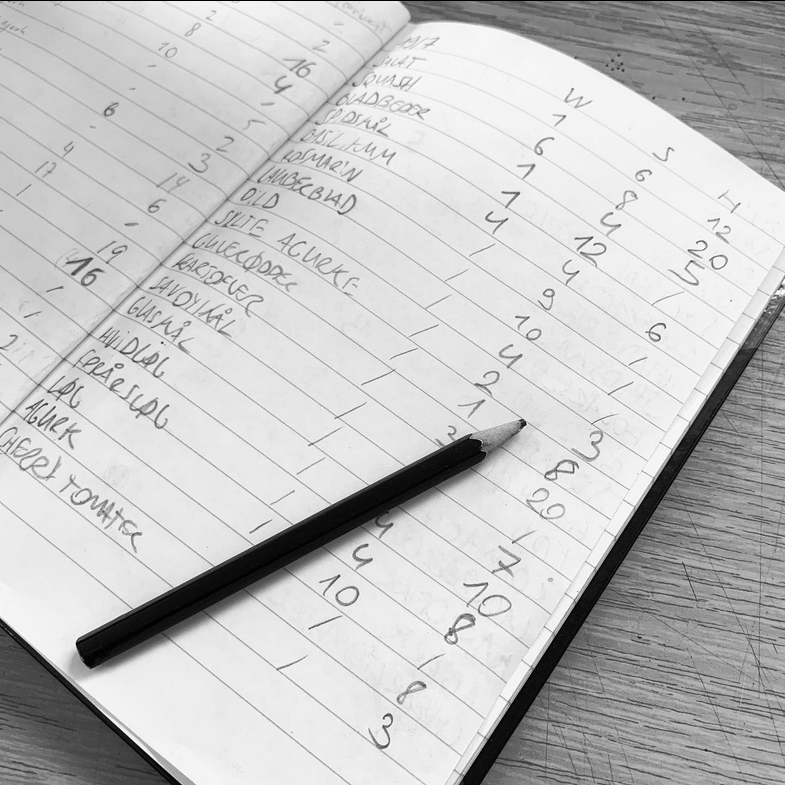 2
8 2
10 16
4
5
6 2
3
4 14
17 6
1
19
16
2
W S H
SALAT 1 6 12
SQUASH 6 8 20
BLADBEDER 1 4 5
SPIDSKÅL 1 12 /
BASILIKUM 4 4 6
ROSMARIN / 9 /
LAUBERBLAD / 10 /
DILD / 4 /
SYLTE AGURKE / 2 3
GULERØDDER / 1 8
KARTOFLER / 3 20
SAVOYKÅL / /
GLASKÅL / 7
HVIDLØG / 4 10
FORÅRSLØG / 4 8
LØG 10 /
AGURK / 8
CHERRY TOMATER / 3